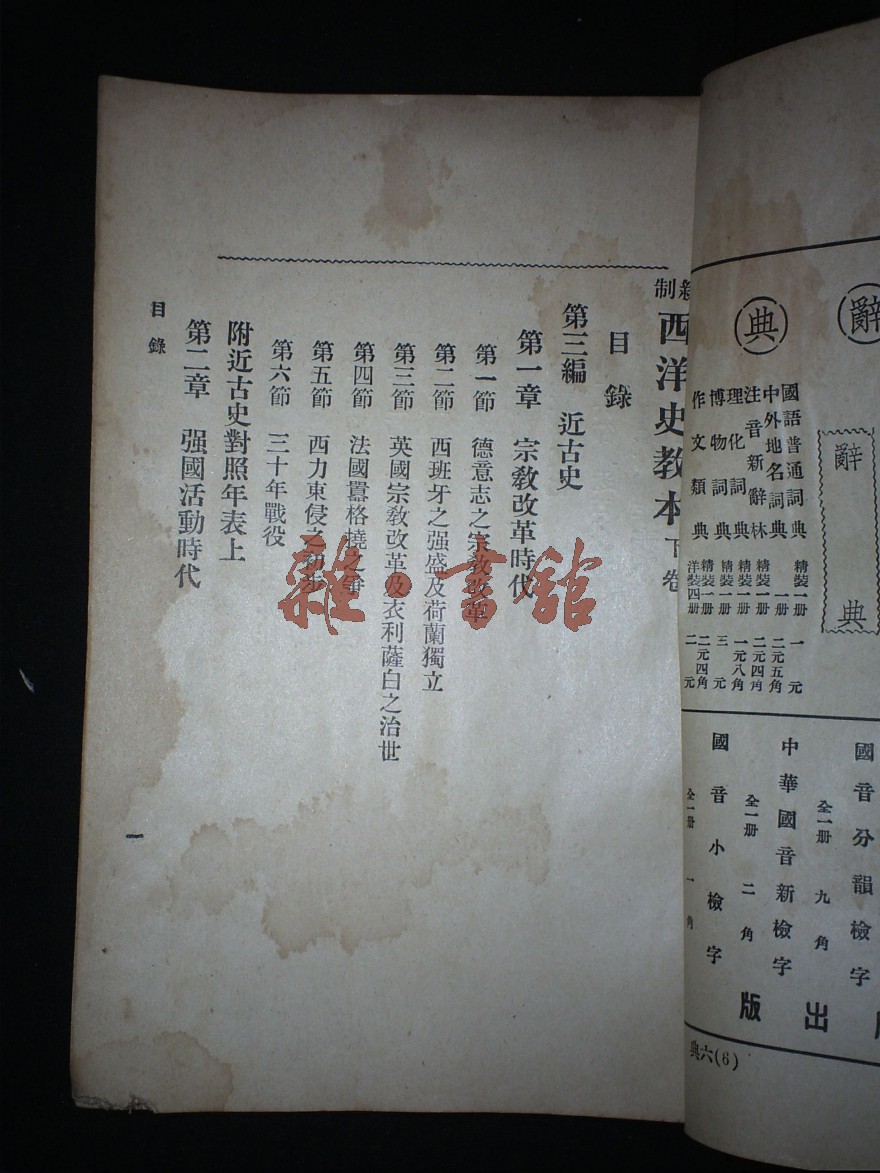 辭
典
辭
典
國語普通詞典 精裝一册 一元
中外地名詞典 一册 二元五角
注音新辭林 精裝一册 二元四角
理化詞典 精裝一册 一元八角
博物詞典 精裝一册 三元
作文類典 精裝一册 二元四角
洋裝四册 二元
國音分韻檢字
全一册 九角
中華國音新檢字
全一册 二角
國音小檢字
全一册 一角
出版
典六(6)
新制 西洋史教本 下卷
目錄
第三編 近古史
第一章 宗教改革時代
第一節 德意志之宗教改革
第二節 西班牙之强盛及荷蘭獨立
第三節 英國宗教改革及衣利薩白之治世
第四節 法國囂格撓之爭
第五節 西力東侵之初步
第六節 三十年戰役
附近古史對照年表上
第二章 强國活動時代
目錄
一
雜·書館